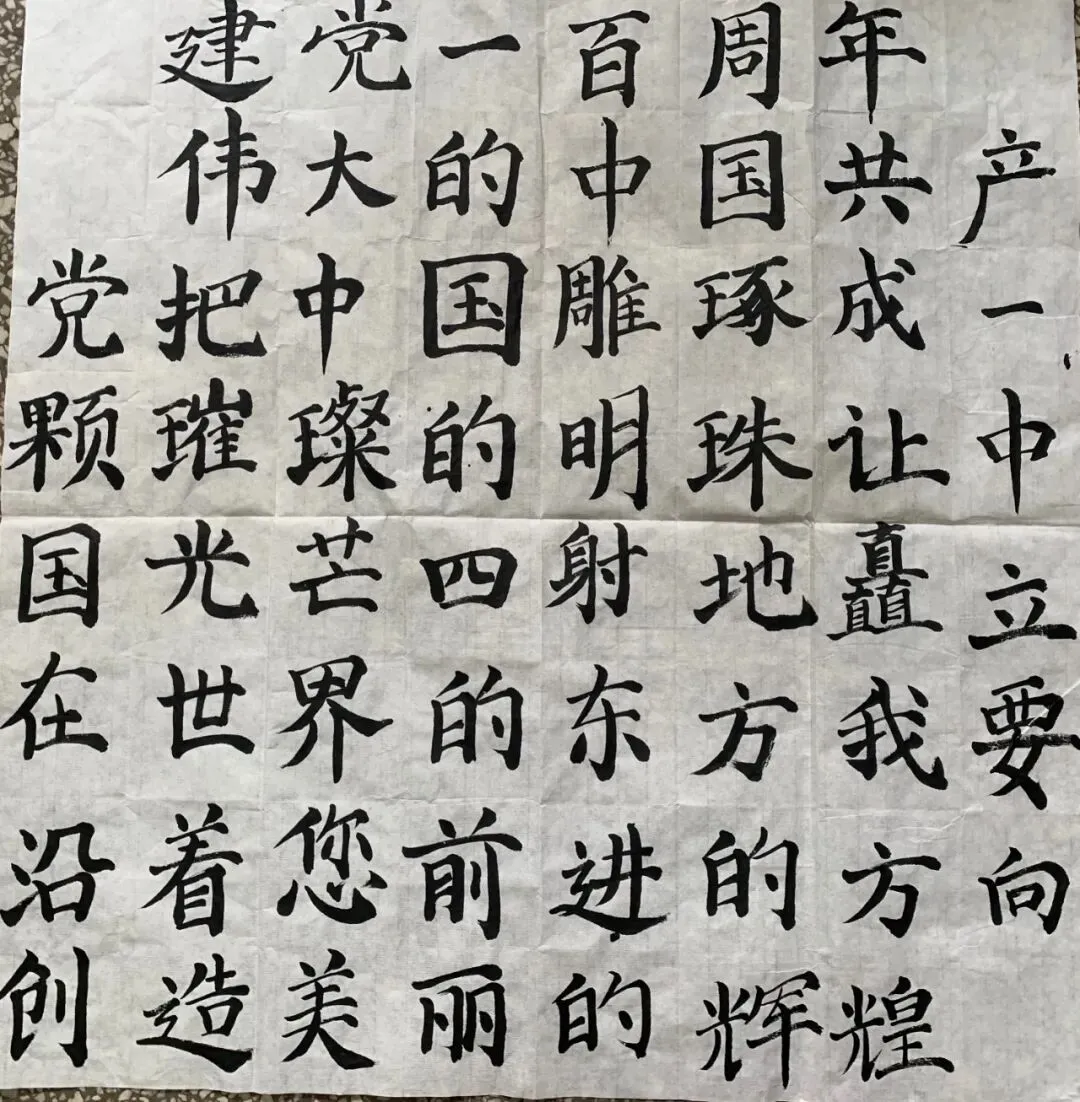 建党一百周年
伟大的中国共产
党把中国雕琢成一
颗璀璨的明珠让中
国光芒四射地矗立
在世界的东方我要
沿着您前进的方向
创造美丽的辉煌